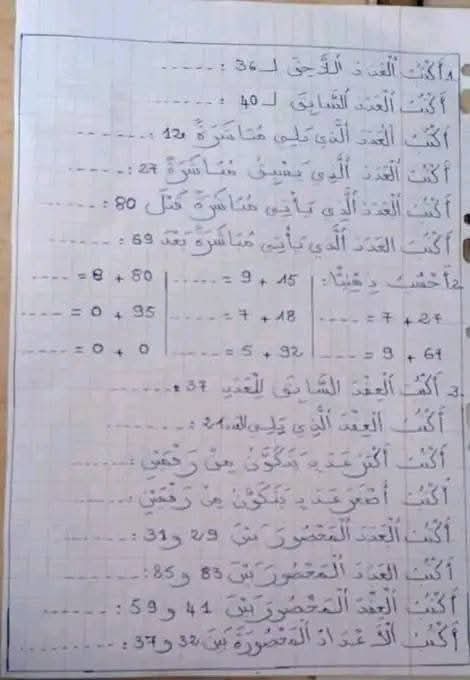 1. أَكْتُبُ ٱلْعَدَدَ ٱللَّاحِقَ لـ 36 : -----
أَكْتُبُ ٱلْعَدَدَ ٱلسَّابِقَ لـ 40 : -----
أَكْتُبُ ٱلْعَدَدَ ٱلَّذِي يَلِي مُبَاشَرَةً 12 : -----
أَكْتُبُ ٱلْعَدَدَ ٱلَّذِي يَسْبِقُ مُبَاشَرَةً 27 : -----
أَكْتُبُ ٱلْعَدَدَ ٱلَّذِي يَأْتِي مُبَاشَرَةً قَبْلَ 80 : -----
أَكْتُبُ ٱلْعَدَدَ ٱلَّذِي يَأْتِي مُبَاشَرَةً بَعْدَ 69 : -----
2. أَحْسُبُ ذِهْنِيًّا : 15 + 9 = ---- | 80 + 8 = ----
27 + 7 = ---- | 18 + 7 = ---- | 95 + 0 = ----
61 + 9 = ---- | 92 + 5 = ---- | 0 + 0 = ----
3. أَكْتُبُ ٱلْعِقْدَ ٱلسَّابِقَ لِلْعَدَدِ 37 : -----
أَكْتُبُ ٱلْعِقْدَ ٱلَّذِي يَلِي الـ 21 : -----
أَكْتُبُ أَكْبَرَ عَدَدٍ يَتَكَوَّنُ مِنْ رَقْمَيْنِ : -----
أَكْتُبُ أَصْغَرَ عَدَدٍ يَتَكَوَّنُ مِنْ رَقْمَيْنِ : -----
أَكْتُبُ ٱلْعَدَدَ ٱلْمَحْصُورَ بَيْنَ 29 و 31 : -----
أَكْتُبُ ٱلْعَدَدَ ٱلْمَحْصُورَ بَيْنَ 83 و 85 : -----
أَكْتُبُ ٱلْعِقْدَ ٱلْمَحْصُورَ بَيْنَ 41 و 59 : -----
أَكْتُبُ ٱلْأَعْدَادَ ٱلْمَحْصُورَةَ بَيْنَ 32 و 37 : -----